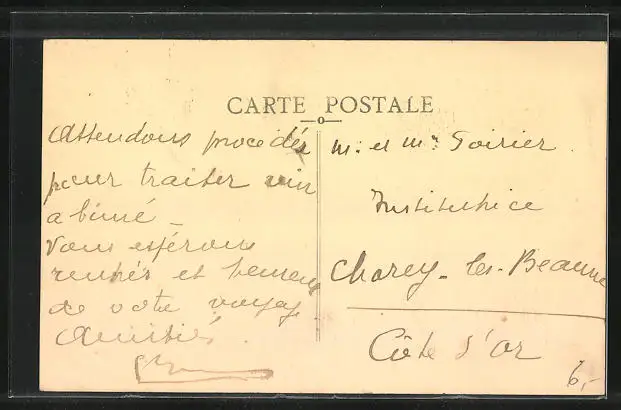 CARTE POSTALE
Attendons procédés
pour traiter vin
abimé –
Vous espérons
rentrés et heureux
de votre voyage
Amitiés.
M. et Mme Poirier.
Institutrice
Chorey-les-Beaune
Côte d'Or
6,-